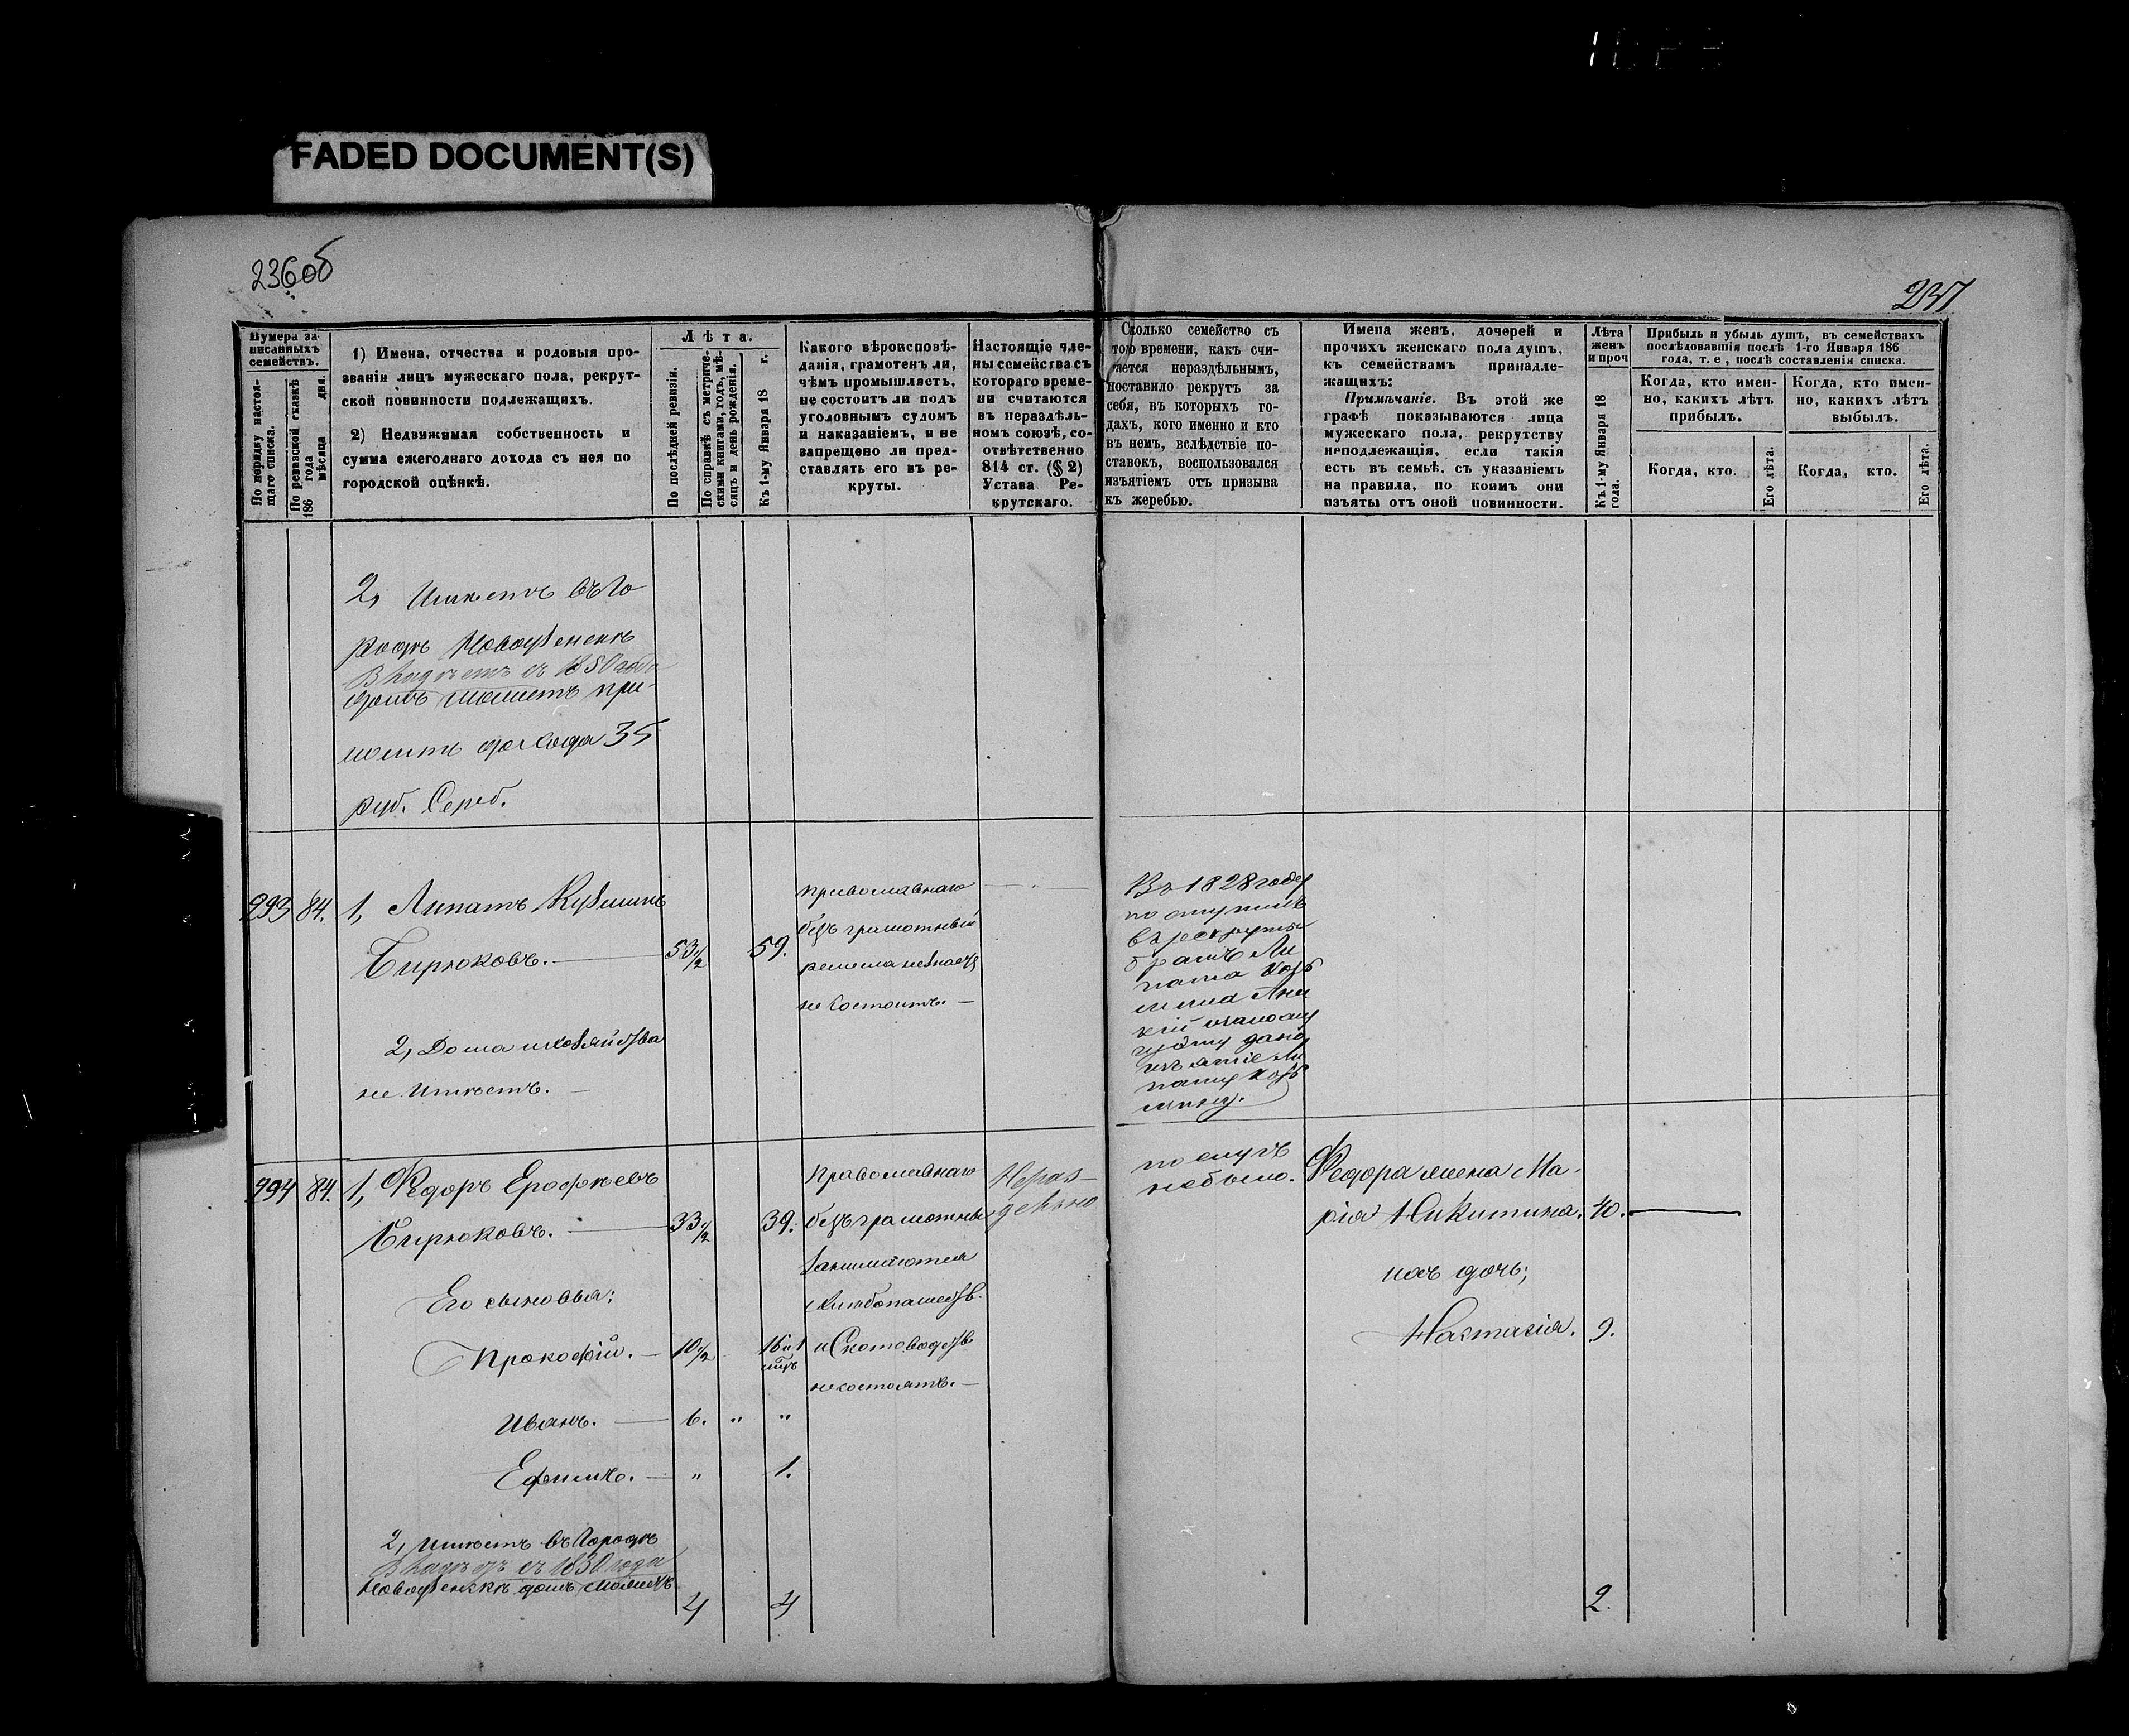 FADED DOCUMENT(S)
236об
237
Нумера за-
писанныхъ
семействъ.
По порядку настоя-
щаго списка.
По ревизской сказкѣ
186 года мѣсяца дня.
1) Имена, отчества и родовыя про-
званія лицъ мужескаго пола, рекрут-
ской повинности подлежащихъ.
2) Недвижимая собственность и
сумма ежегоднаго дохода съ нея по
городской оцѣнкѣ.
Лѣта.
По послѣдней ревизіи.
По справкѣ съ метриче-
скими книгами, годъ, мѣ-
сяцъ и день рожденія.
Къ 1-му Января 18 г.
Какого вѣроисповѣ-
данія, грамотенъ ли,
чѣмъ промышляетъ,
не состоитъ ли подъ
уголовнымъ судомъ
и наказаніемъ, и не
запрещено ли пред-
ставлять его въ ре-
круты.
Настоящіе чле-
ны семейства съ
котораго време-
ни считаются
въ нераздѣль-
номъ союзѣ, со-
отвѣтственно
814 ст. (§ 2)
Устава Ре-
крутскаго.
Сколько семейство съ
того времени, какъ счи-
тается нераздѣльнымъ,
поставило рекрутъ за
себя, въ которыхъ го-
дахъ, кого именно и кто
въ немъ, вслѣдствіе по-
ставокъ, воспользовался
изъятіемъ отъ призыва
къ жеребью.
Имена женъ, дочерей и
прочихъ женскаго пола душъ,
къ семействамъ принадле-
жащихъ:
Примѣчаніе. Въ этой же
графѣ показываются лица
мужескаго пола, рекрутству
неподлежащія, если такія
есть въ семьѣ, съ указаніемъ
на правила, по коимъ они
изъяты отъ оной повинности.
Лѣта
женъ
и проч
Къ 1-му Января 18
года.
Прибыль и убыль душъ, въ семействахъ
послѣдовавшія послѣ 1-го Января 186
года, т. е, послѣ составленія списка.
Когда, кто имен-
но, какихъ лѣтъ
прибылъ.
Когда, кто имен-
но, какихъ лѣтъ
выбылъ.
Когда, кто.
Его лѣта.
Когда, кто.
Его лѣта.
2, Имѣетъ въ Го
родѣ Новоузенскѣ
Владѣетъ съ 1850 года
домъ можетъ при-
носить дохода 35
руб. Сереб.
293 84. 1, Липатъ Кузминъ
Бирюковъ. 53½ 59.
2, Дома и хозяйства
не Имѣетъ.
православнаго
безъ грамотный
ремесла не знаетъ
не Состоитъ.
Въ 1828 году
поступилъ
въ рекруты
братъ Ли
пата Козь
мина
чему дано
изъятіе Ли
пату Козь
мину.
294 84. 1, Федоръ Ерофѣевъ
Бирюковъ. 33½ 39.
Его сыновья:
Прокофій. 10½ 16 и 1
Иванъ. 6. " "
Ефимъ. " 1.
2, Имѣетъ въ Городѣ
Владѣетъ съ 1830 года
Новоузенскѣ домъ можетъ
4 4
Православнаго
безъ грамотны
Занимаются
Хлѣбопашеств.
и Скотоводств.
не состоятъ.
Нераз-
дельно
поступ
не было.
Федора жена Ма-
рія Никитина. 40.
ихъ дочь;
Настасія. 9.
2.